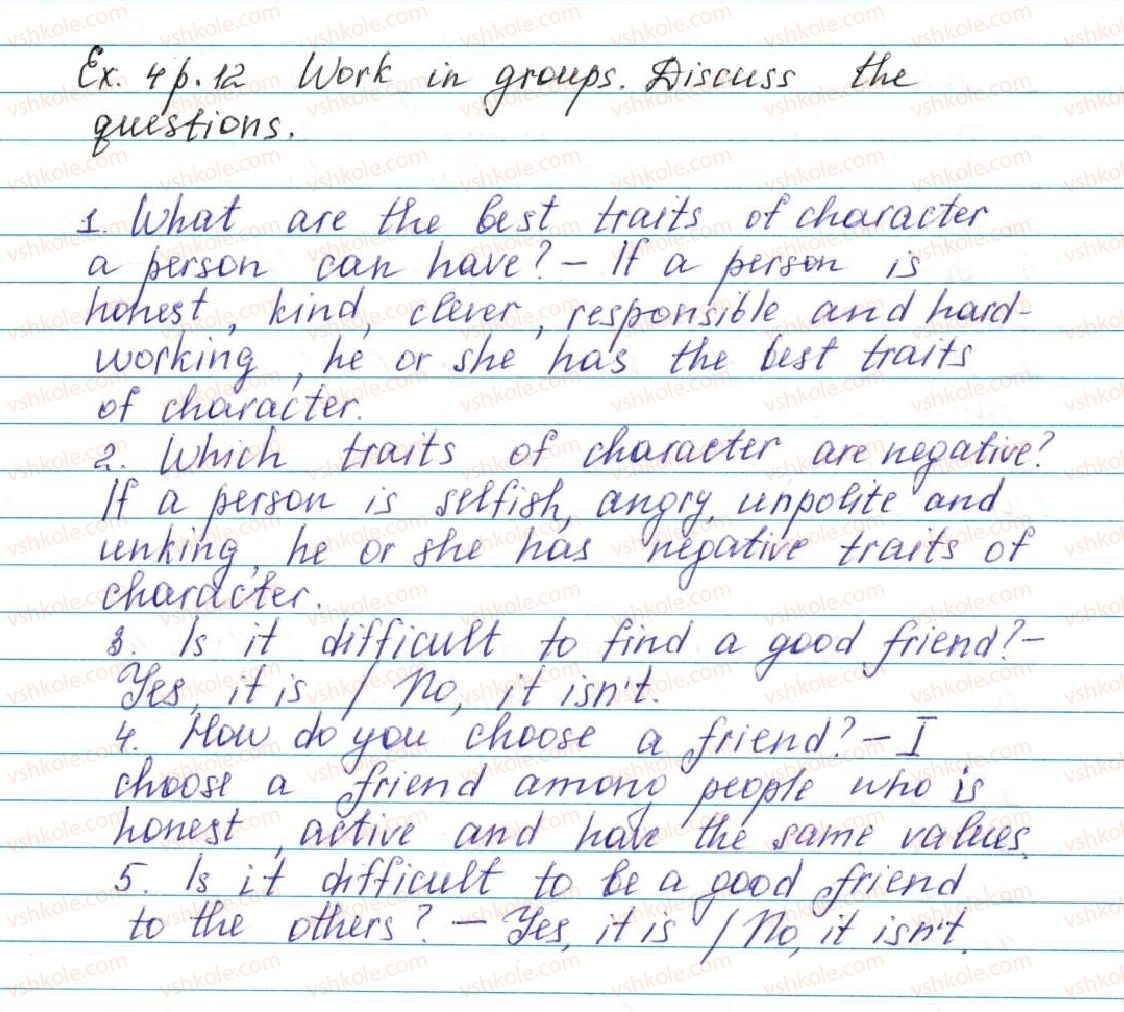 Ex. 4 p. 12 Work in groups. Discuss the
questions.
1. What are the best traits of character
a person can have? – If a person is
honest, kind, clever, responsible and hard-
working, he or she has the best traits
of character.
2. Which traits of character are negative?
If a person is selfish, angry, unpolite and
unking, he or she has negative traits of
character.
3. Is it difficult to find a good friend? –
Yes, it is / No, it isn't.
4. How do you choose a friend? – I
choose a friend among people who is
honest, active and have the same values.
5. Is it difficult to be a good friend
to the others? – Yes, it is / No, it isn't.